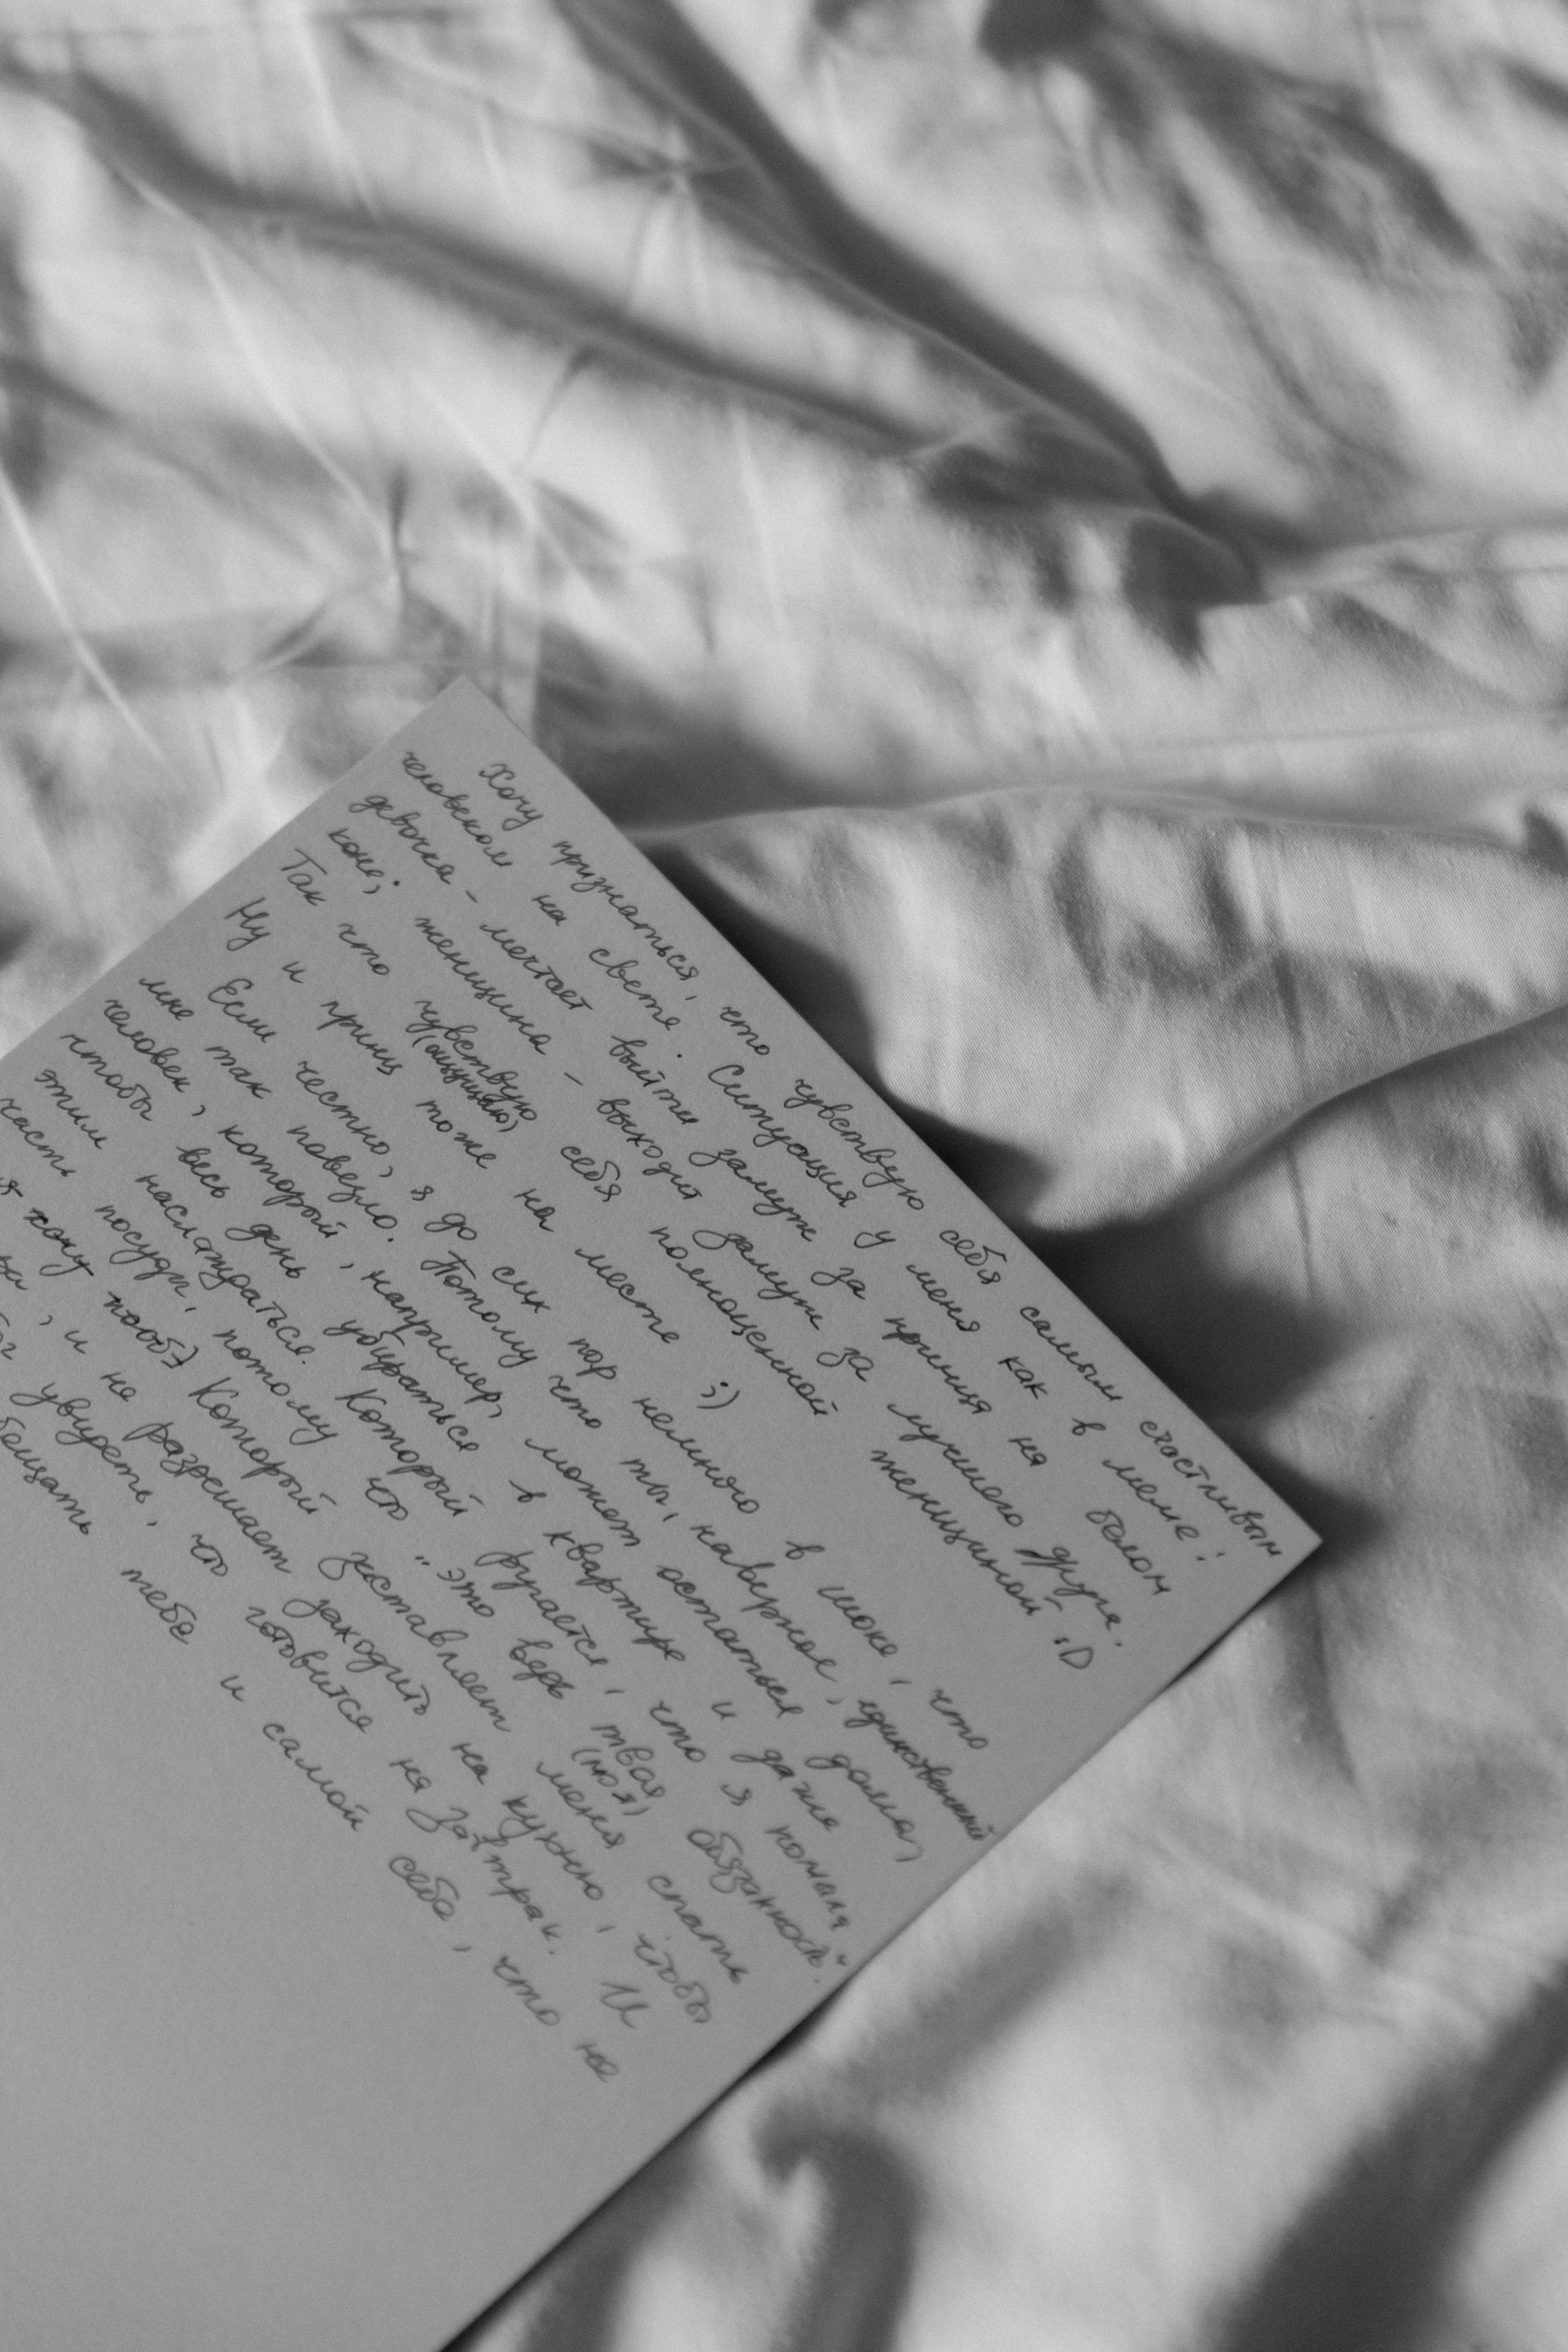 Хочу признаться, что чувствую себя самым счастливым
человеком на свете. Ситуация у меня как в меме:
девочка - мечтает выйти замуж за принца на белом
коне; женщина - выходит замуж за лучшего друга.
Так что чувствую себя полноценной женщиной :D
(ощущаю)
Ну и принц тоже на месте ;)
Если честно, я до сих пор немного в шоке, что
мне так повезло. Потому что ты, наверное, единственный
человек, который, например, может остаться дома,
чтобы весь день убираться в квартире и даже
этим наслаждаться. Который ругается, что я помыла
часть посуды, потому что "это ведь твоя обязанность".
(но я)
я хочу Который заставляет меня спать
, и не разрешает заходить на кухню, чтобы
увидеть, что готовится на завтрак. И
тебе и самой себе, что не